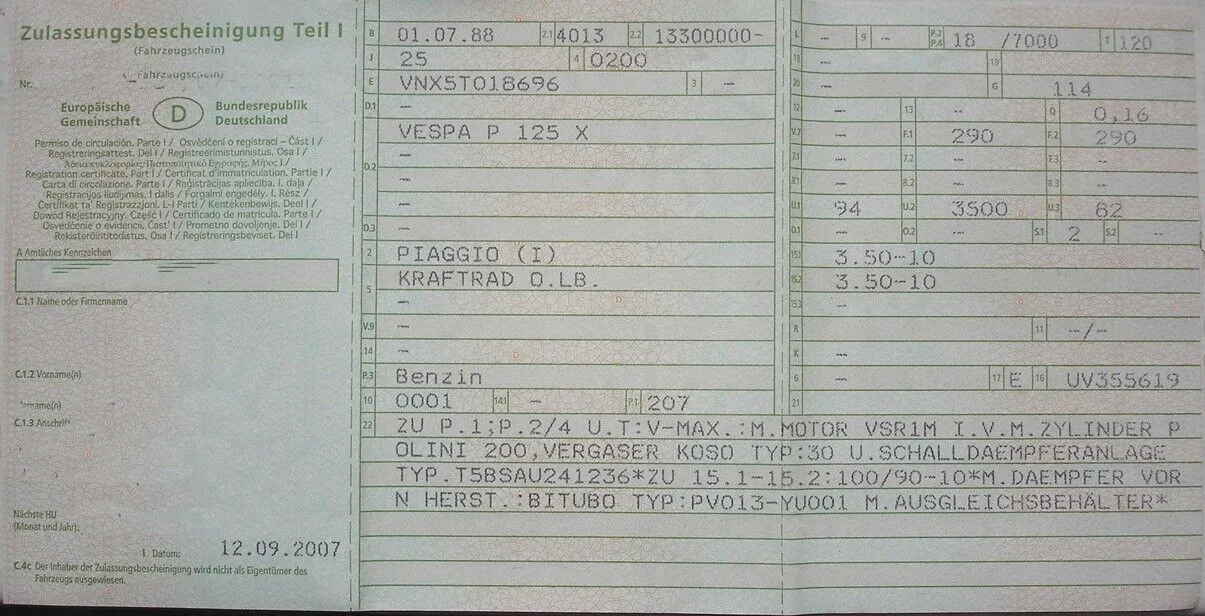 Zulassungsbescheinigung Teil I
(Fahrzeugschein)
(Fahrzeugschein)
Nr.
Europäische Gemeinschaft D Bundesrepublik Deutschland
Permiso de circulación. Parte I / Osvědčení o registraci – Část I /
Registreringsattest. Del I / Registreerimistunnistus. Osa I /
Άδεια κυκλοφορίας/Πιστοποιητικό Εγγραφής. Μέρος I /
Registration certificate. Part I / Certificat d'immatriculation. Partie I /
Carta di circolazione. Parte I / Reģistrācijas apliecība. I. daļa /
Registracijos liudijimas. I dalis / Forgalmi engedély. I. Rész /
Ċertifikat ta' Reġistrazzjoni. L-I Parti / Kentekenbewijs. Deel I /
Dowód Rejestracyjny. Część I / Certificado de matrícula. Parte I /
Osvedčenie o evidencii. Časť I / Prometno dovoljenje. Del I /
Rekisteröintitodistus. Osa I / Registreringsbeviset. Del I
A Amtliches Kennzeichen
C.1.1 Name oder Firmenname
C.1.2 Vorname(n)
C.1.3 Anschrift
Nächste HU
(Monat und Jahr):
I Datum: 12.09.2007
C.4c Der Inhaber der Zulassungsbescheinigung wird nicht als Eigentümer des
Fahrzeugs ausgewiesen.
B 01.07.88 2.1 4013 2.2 13300000-
J 25 4 0200
E VNX5T018696 3 —
D.1
VESPA P 125 X
—
D.2 —
—
D.3 —
2 PIAGGIO (I)
5 KRAFTRAD O.LB.
—
V.9 —
14 —
P.3 Benzin
10 0001 14.1 — P.1 207
L — 9 — P.2 P.4 18 /7000 T 120
18 — 19
20 — G 114
12 — 13 -- Q 0,16
V.7 — F.1 290 F.2 290
7.1 — 7.2 -- 7.3 --
8.1 — 8.2 -- 8.3 --
U.1 94 U.2 3500 U.3 82
O.1 — O.2 -- S.1 2 S.2 --
15.1 3.50-10
15.2 3.50-10
15.3 --
R 11 --/-
K —
6 — 17 E 16 UV355619
21
22 ZU P.1;P.2/4 U.T:V-MAX.:M.MOTOR VSR1M I.V.M.ZYLINDER P
OLINI 200,VERGASER KOSO TYP:30 U.SCHALLDAEMPFERANLAGE
TYP.T5BSAU241236*ZU 15.1-15.2:100/90-10*M.DAEMPFER VOR
N HERST.:BITUBO TYP:PV013-YU001 M.AUSGLEICHSBEHÄLTER*